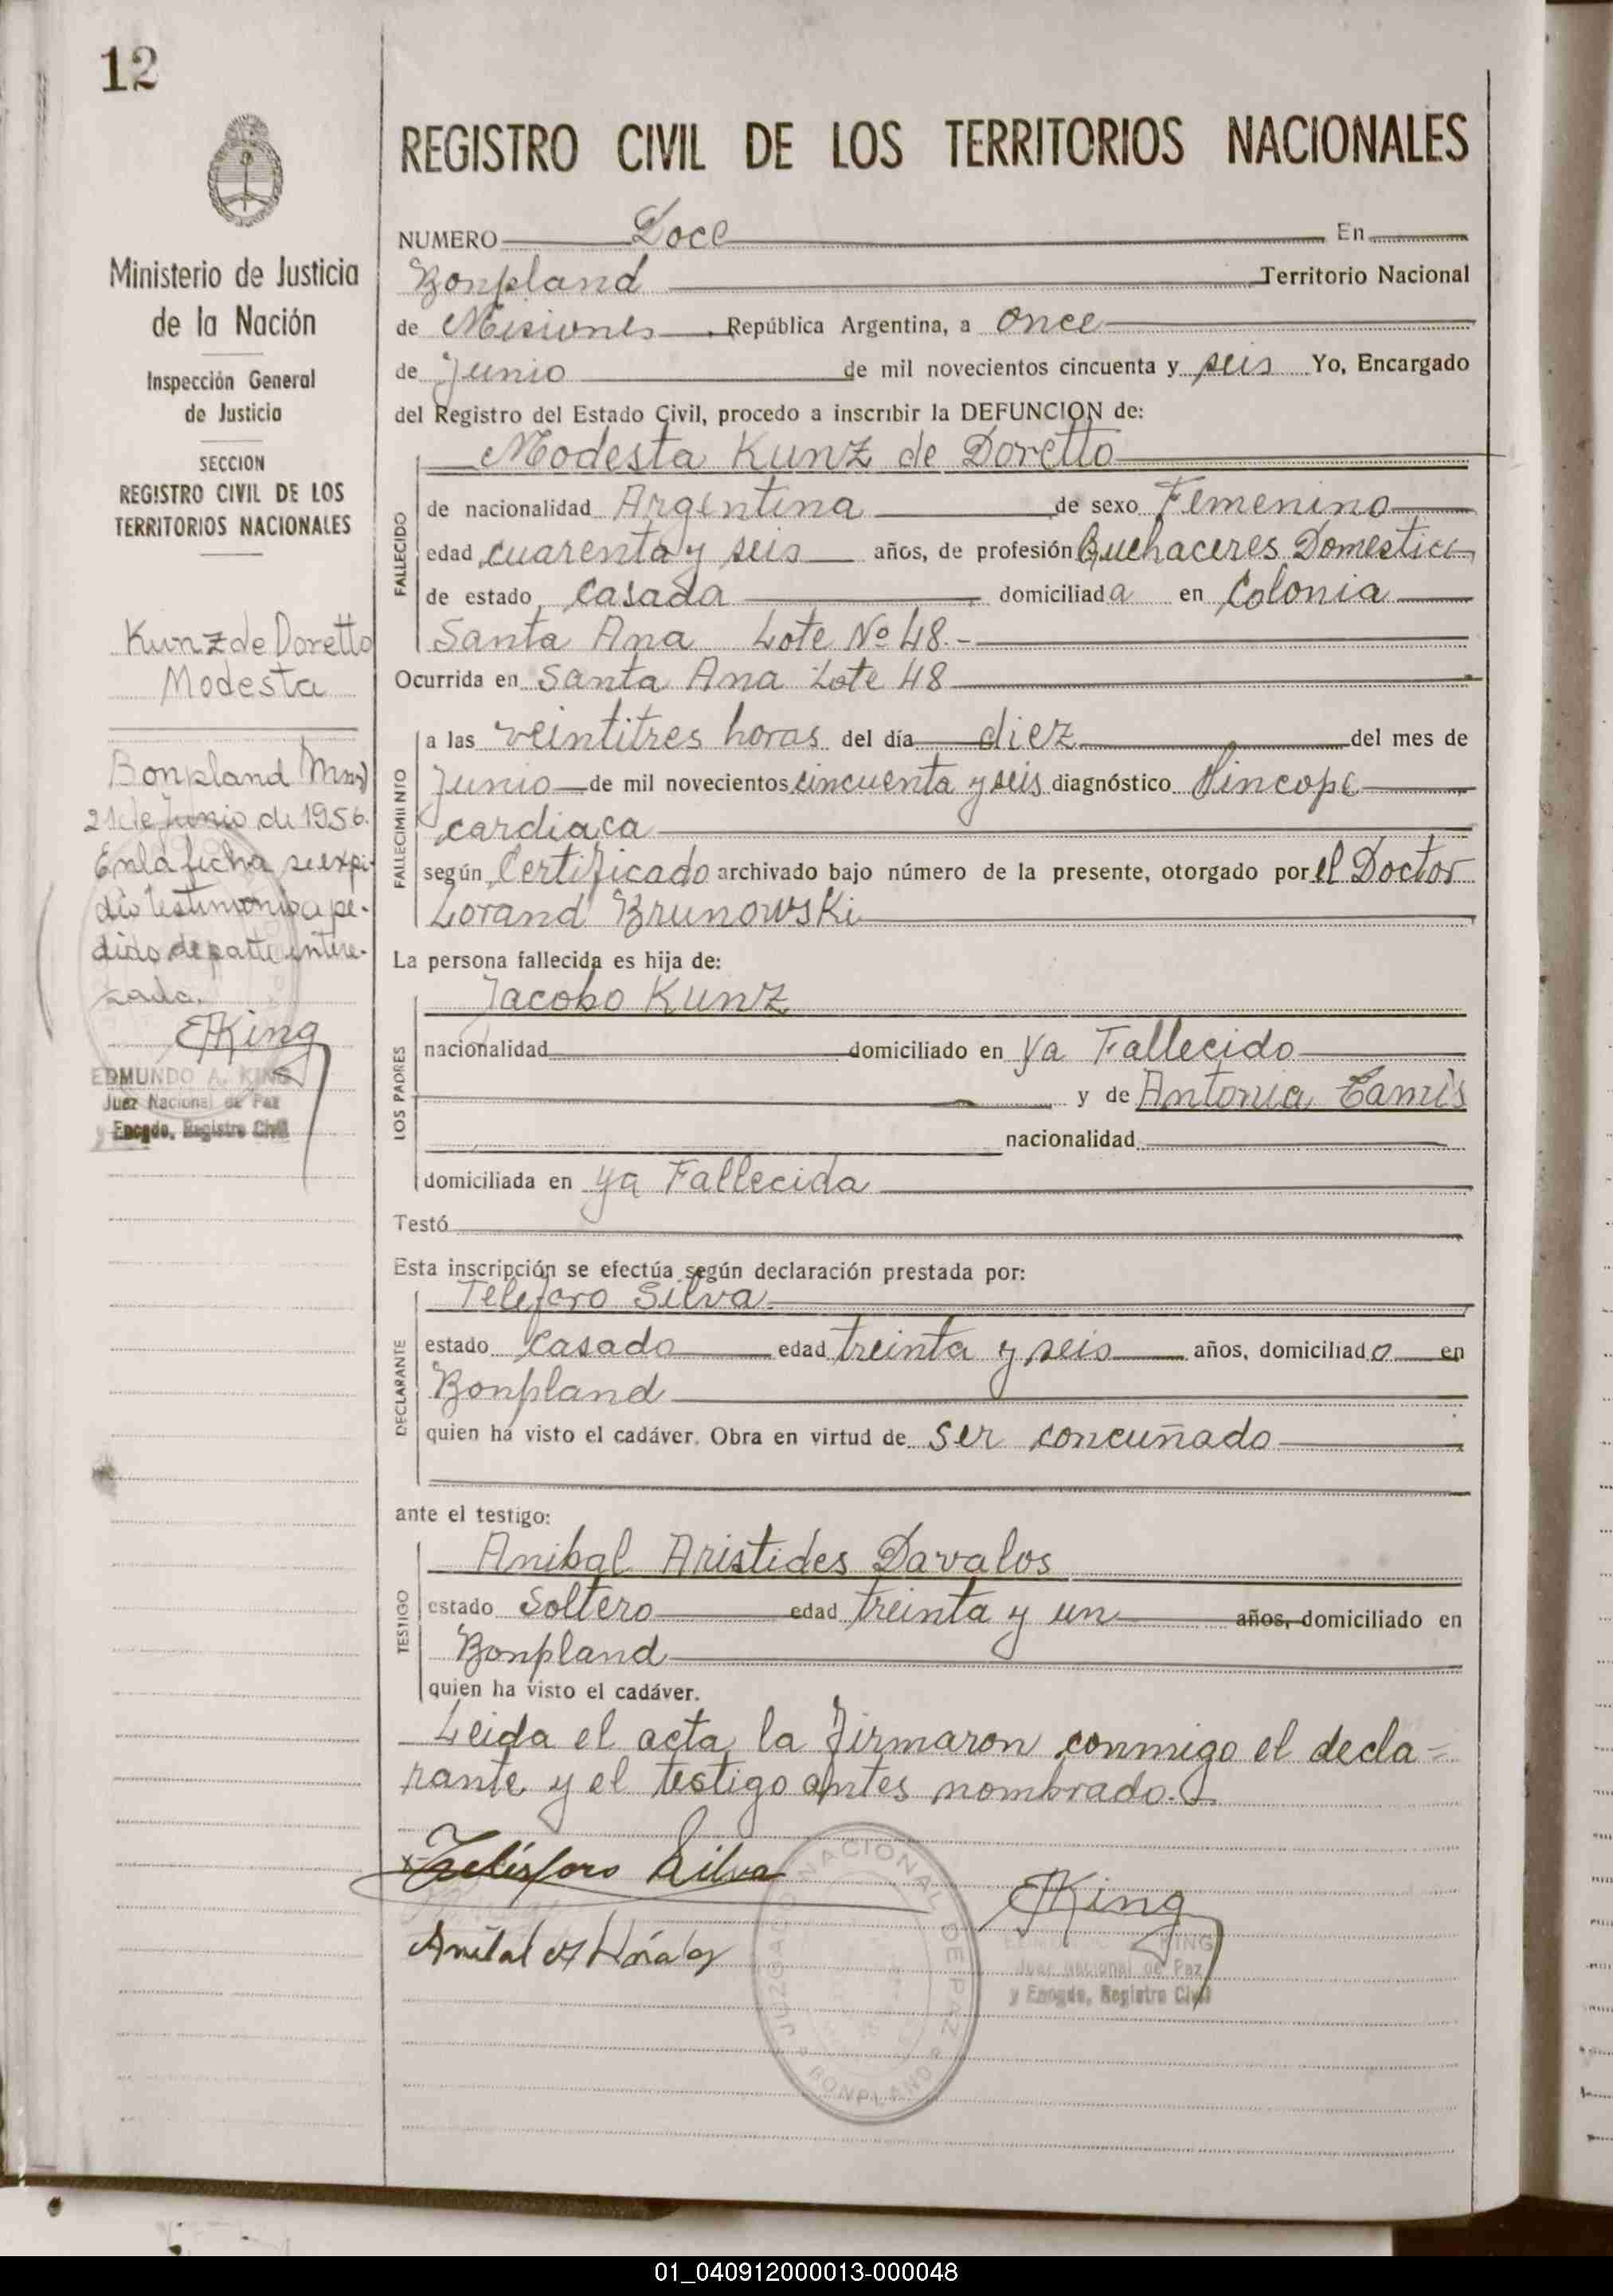 12
REGISTRO CIVIL DE LOS TERRITORIOS NACIONALES
Ministerio de Justicia
de la Nación
Inspección General
de Justicia
SECCION
REGISTRO CIVIL DE LOS
TERRITORIOS NACIONALES
Kunz de Doretto
Modesta
Bonpland (Mnes)
21 de Junio de 1956.
En la fecha se expi-
dio testimonio a pe-
dido de parte intere-
zada.
EAKing
EDMUNDO A. KING
Juez Nacional de Paz
y Encgdo. Registro Civil
NUMERO Doce En
Bonpland Territorio Nacional
de Misiones República Argentina, a once
de Junio de mil novecientos cincuenta y seis Yo, Encargado
del Registro del Estado Civil, procedo a inscribir la DEFUNCION de:
FALLECIDO
Modesta Kunz de Doretto
de nacionalidad Argentina de sexo Femenino
edad cuarenta y seis años, de profesión Quehaceres Domestico
de estado casada domiciliada en Colonia
Santa Ana Lote Nº 48.-
Ocurrida en Santa Ana Lote 48
FALLECIMIENTO
a las veintitres horas del día diez del mes de
Junio de mil novecientos cincuenta y seis diagnóstico Sincope
cardiaca
según Certificado archivado bajo número de la presente, otorgado por el Doctor
Lorand Brunowski
La persona fallecida es hija de:
LOS PADRES
Jacobo Kunz
nacionalidad domiciliado en ya Fallecido
y de Antonia
nacionalidad
domiciliada en ya Fallecida
Testó
Esta inscripción se efectúa según declaración prestada por:
DECLARANTE
Telesforo Silva
estado casado edad treinta y seis años, domiciliado en
Bonpland
quien ha visto el cadáver. Obra en virtud de ser concuñado
ante el testigo:
TESTIGO
Anibal Aristides Davalos
estado Soltero edad treinta y un años, domiciliado en
Bonpland
quien ha visto el cadáver.
Leida el acta la firmaron conmigo el decla-
rante y el testigo antes nombrado.
Telésforo Silva
EAKing
Anibal A
KING
Juez Nacional de Paz
y Encgdo. Registro Civil
JUZGADO NACIONAL DE PAZ
BONPLAND
01_040912000013-000048